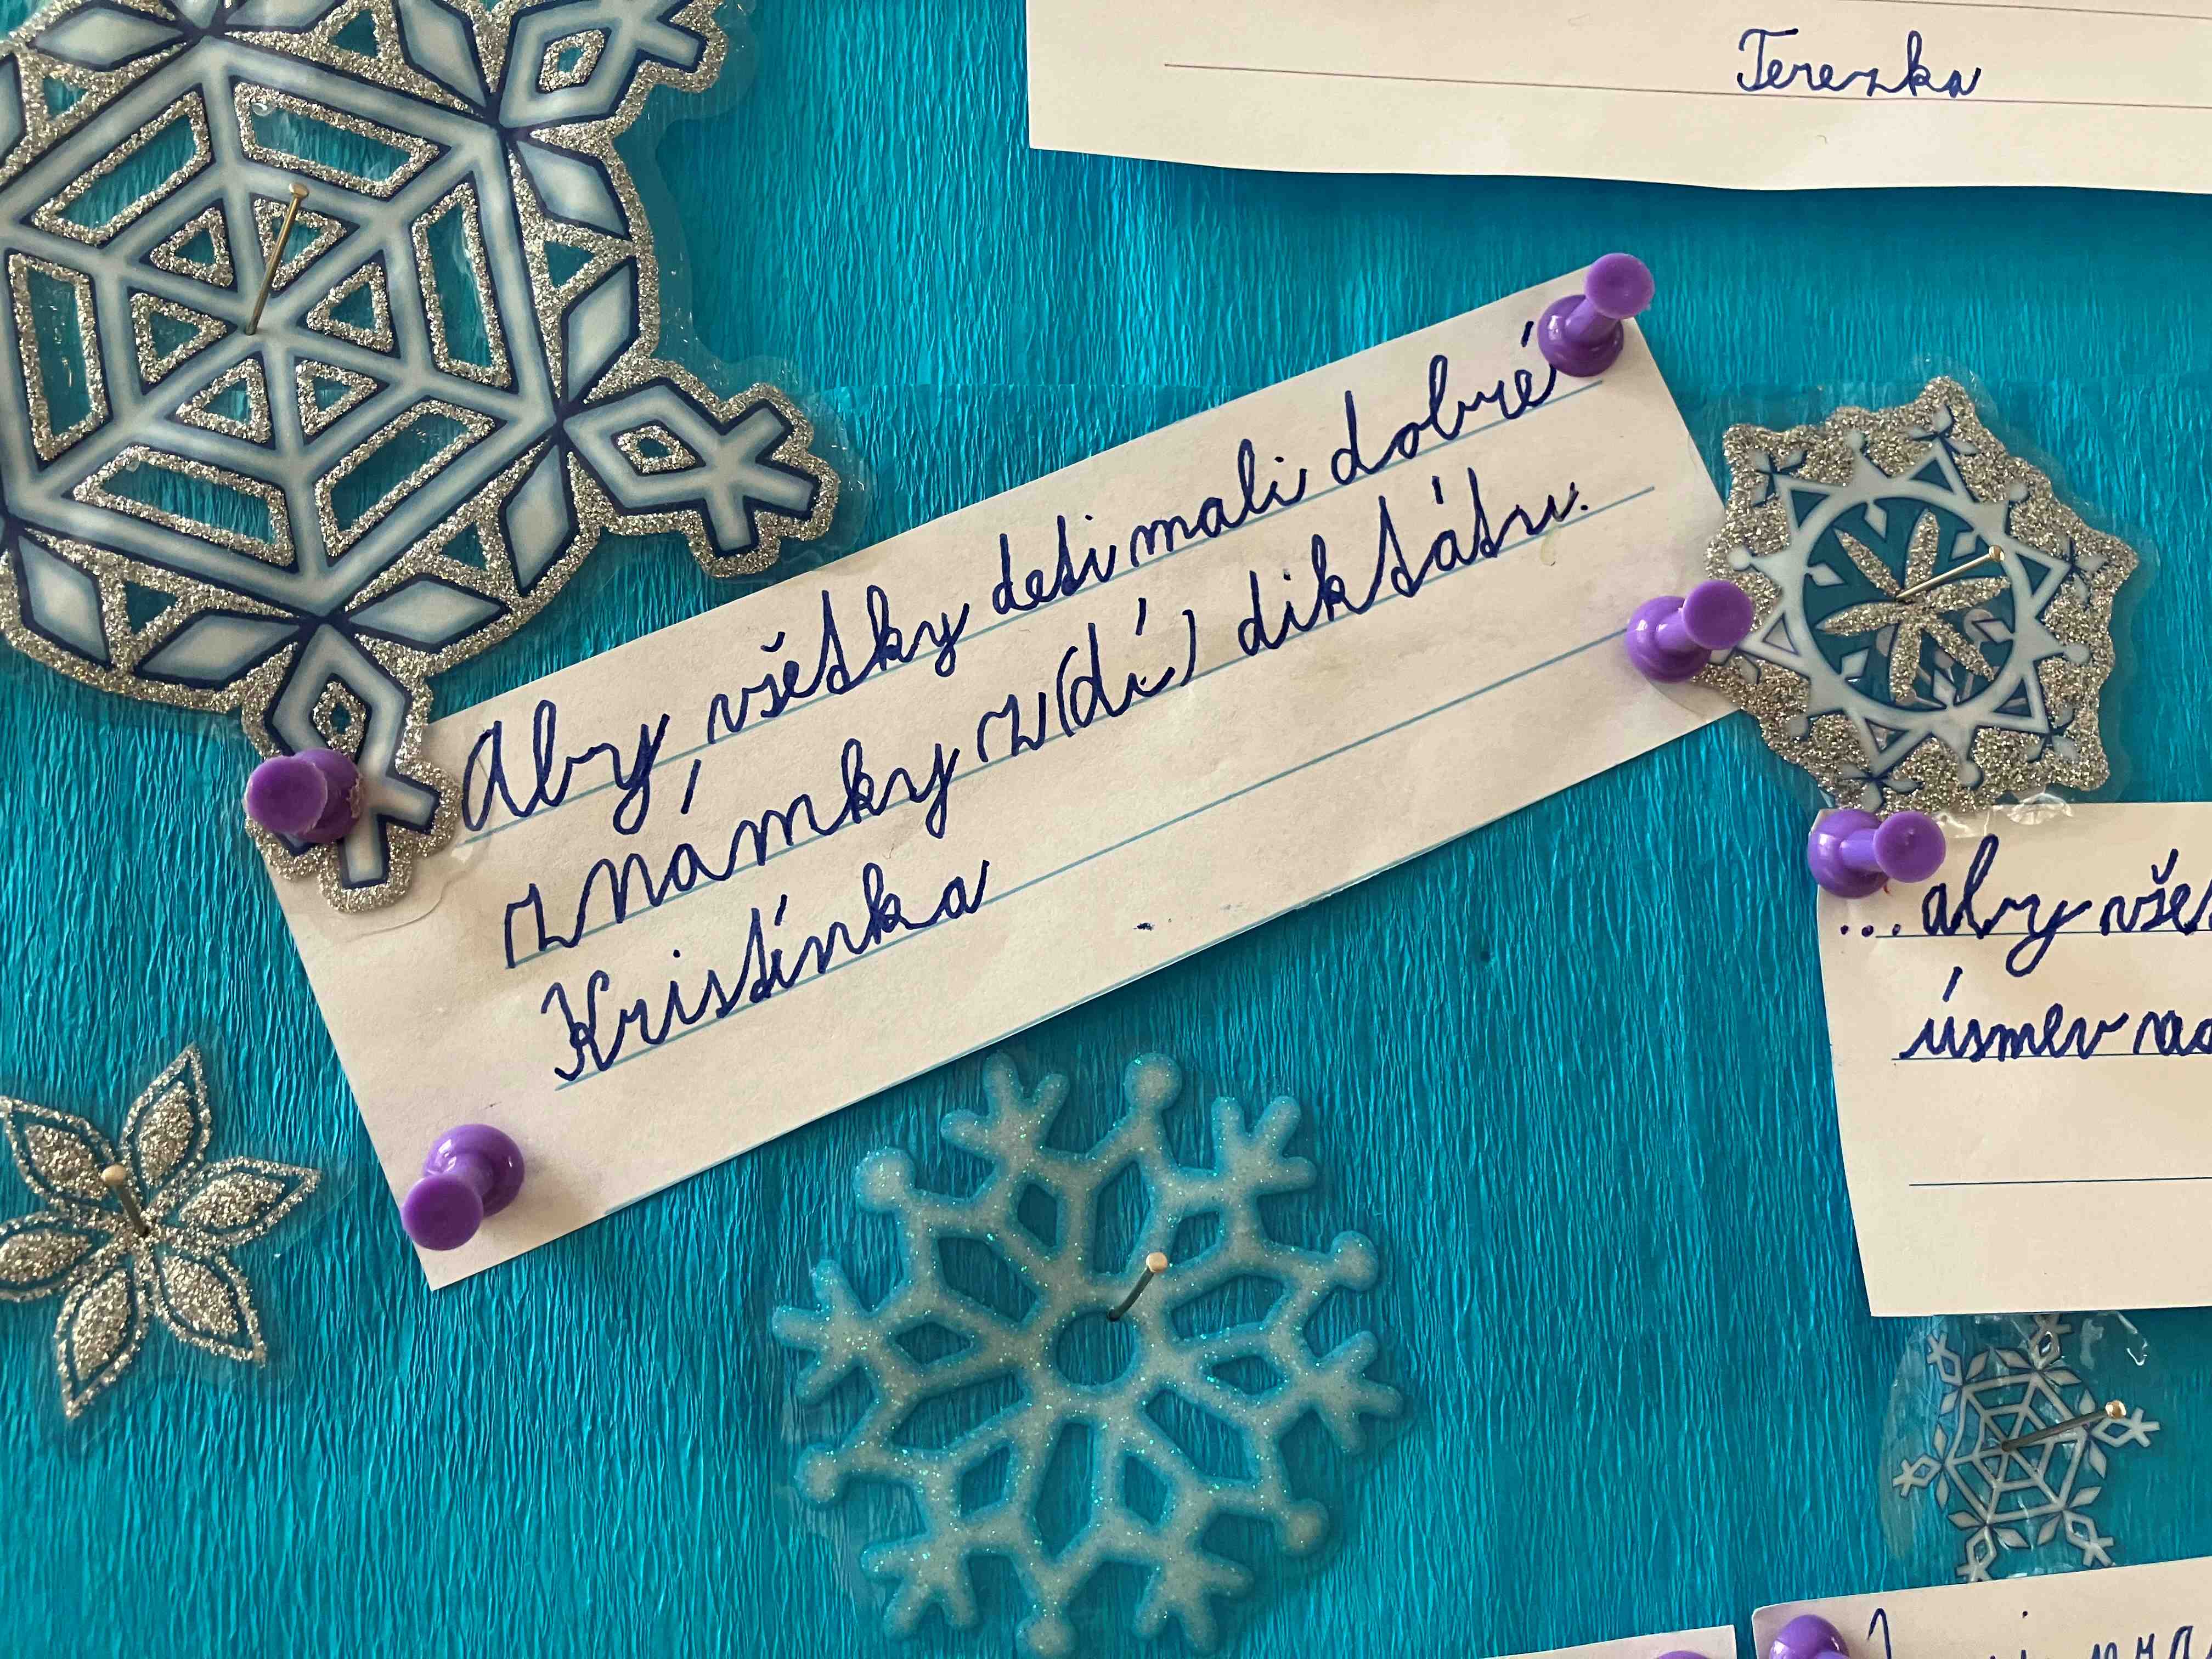 Terezka
Aby, všetky deti mali dobré
známky z (dí) diktátu.
Kristínka
...aby vše
úsmev na